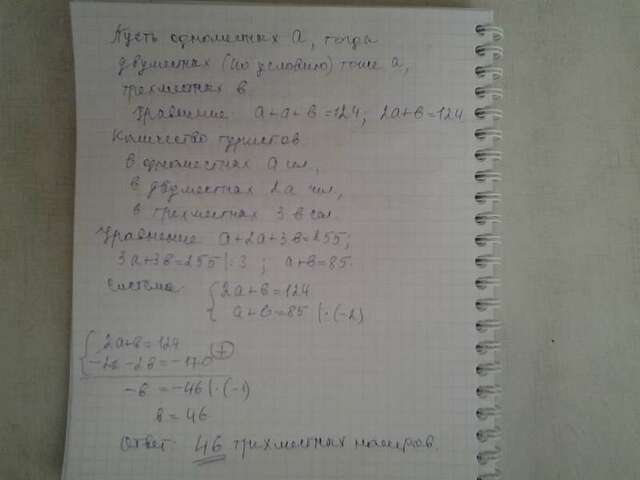 Пусть одноместных а, тогда
двуместных (по условию) тоже а,
трехместных в.
Уравнение: а+а+в=124; 2а+в=124
Количество туристов
в одноместных а чел,
в двуместных 2а чел,
в трехместных 3в чел.
Уравнение: а+2а+3в=255;
3а+3в=255|:3; а+в=85.
Система: {2а+в=124
а+в=85 |·(-2)
{2а+в=124
-2а-2в=-170 (+)
-в=-46|·(-1)
в=46
Ответ: 46 трёхместных номеров.